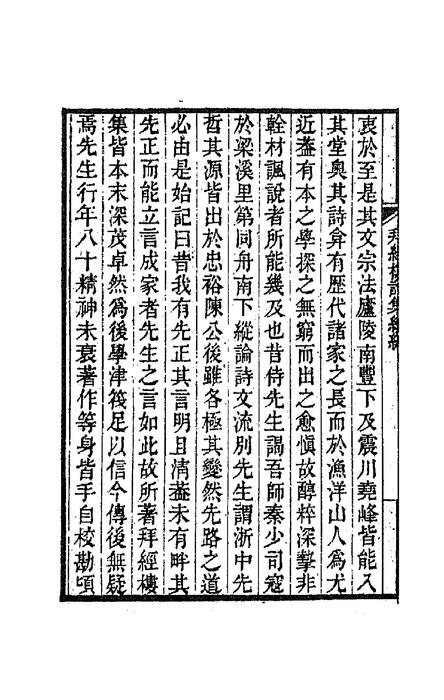 衷於至是其文宗法廬陵南豐下及震川堯峰皆能入
其堂奧其詩弇有歷代諸家之長而於漁洋山人爲尤
近蓋有本之學探之無窮而出之愈愼故醇粹深摯非
輇材諷說者所能幾及也昔侍先生謁吾師秦少司寇
於梁溪里第同舟南下縱論詩文流別先生謂浙中先
哲其源皆出於忠裕陳公後雖各極其變然先路之道
必由是始記曰昔我有先正其言明且淸蓋未有畔其
先正而能立言成家者先生之言如此故所著拜經樓
集皆本末深茂卓然爲後學津筏足以信今傳後無疑
焉先生行年八十精神未衰著作等身皆手自校勘頃
拜經樓詩集續編